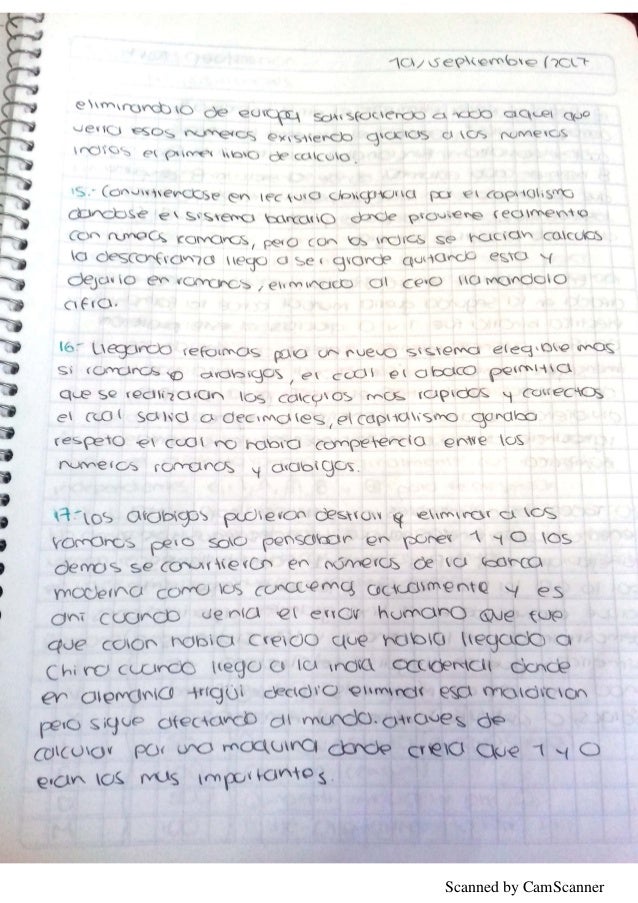 19/septiembre/2017
eliminandolo de europa satisfaciendo a todo aquel que
veria esos numeros existiendo gracias a los numeros
indios el primer libro de calculo.
15.- Convirtiendose en lectura obligatoria por el capitalismo
dandose el sistema bancario donde proviene
con numeros romanos, pero con los indios se hacian calculos
la desconfianza llego a ser grande quitando esta y
dejarlo en romanos, eliminado al cero llamandolo
cifra.
16- Llegando reformas para un nuevo sistema elegible mas
si romanos o arabigos, el cual el abaco permitia
que se realizaran los calculos mas rapidos y correctos
el cual salia a decimales, el capitalismo ganaba
respeto el cual no habia competencia entre los
numeros romanos y arabigos.
17-los arabigos pudieron destruir y eliminar a los
romanos pero solo pensaban en poner 1 y 0 los
demas se convirtieron en números de la banca
moderna como los actualmente y es
ahi cuando venia el error humano que fue
que colon habia creido que habia llegado a
China cuando llego a la india occidental donde
en alemania trigüi decidio eliminar esa maldicion
pero sigue afectando al mundo. atraves de
calcular por una maquina donde creia que 1 y 0
eran los mas importantes.
Scanned by CamScanner